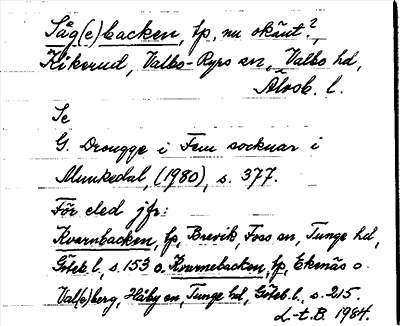 Såg(e)backen, tp, nu okänt?,
Kikerud, Valbo-Ryrs sn, Valbo hd,
Älvsb. l.
Se
G. Drougge i Fem socknar i
Munkedal, (1980), s. 377.
För eled jfr:
Kvarnbacken, tp, Brevik, Foss sn, Tunge hd,
Göteb. l., s. 153 o. Kvarnebacken, tp, Ekenäs o.
Val(e)berg, Håby sn, Tunge hd, Göteb. l., s. 215.
L-t. B 1984.